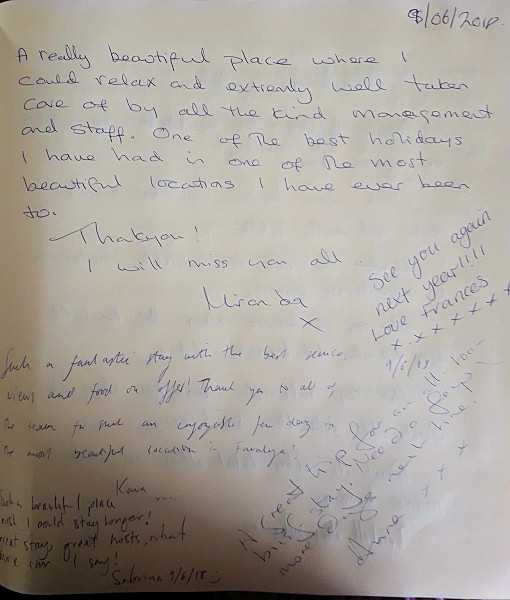 8/06/2018.
A really beautiful place where I
could relax and extremly well taken
care of by all the kind management
and staff. One of the best holidays
I have had in one of the most
beautiful locations I have ever been
to.
Thakyou!
I will miss you all
Miranda
X
See you again
next year!!!!
Love Frances
x x x x x x x
9/6/18
Such a fantastic stay with the best service,
views and food on offer! Thank you to all of
the team for such an enjoyable few days in
the most beautiful location in Faralya!
Kara
Such a beautiful place
wish I could stay longer!
great stay, great hosts, what
more can I say!
Sabrina 9/6/18
A great trip for an all too
brief stay. Need a
more time!
x x x